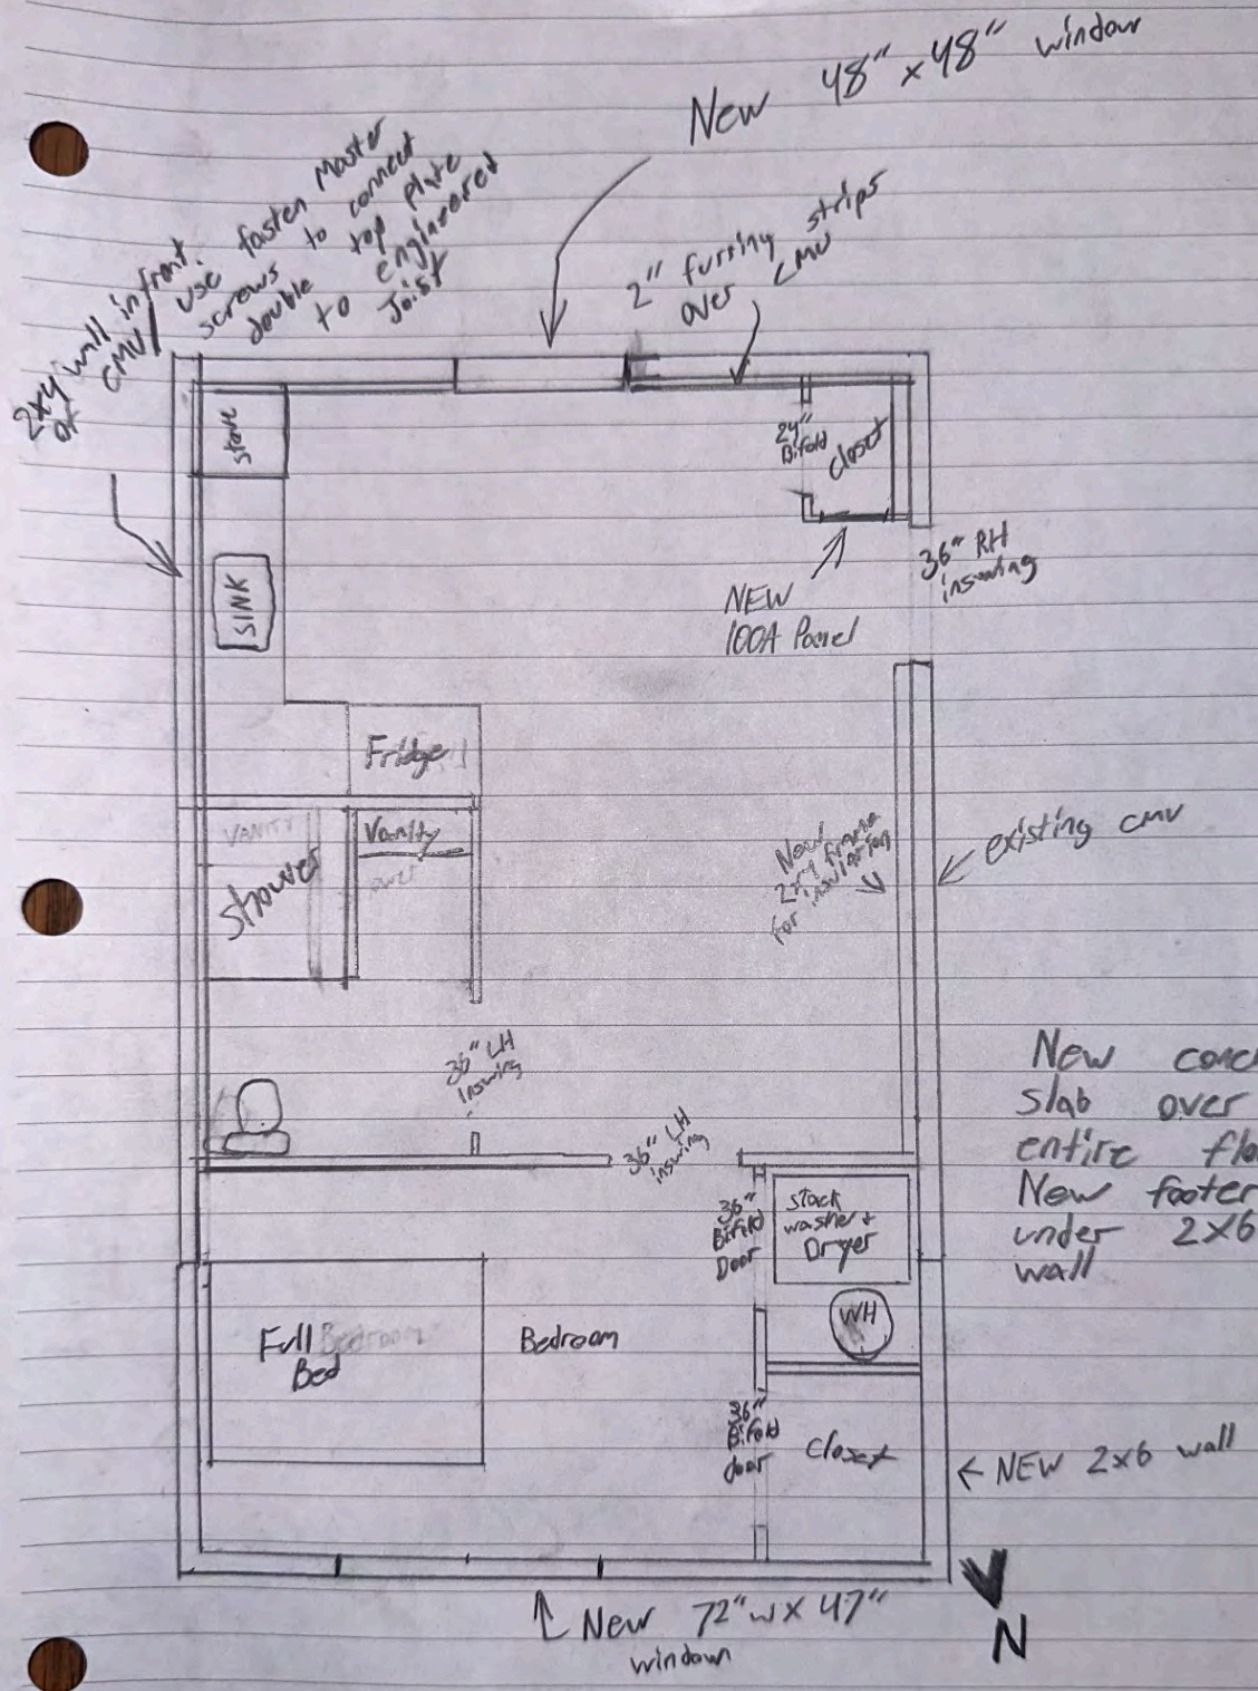 New 48" x 48" window
2x4 wall in front
of CMU/
use fasten Master
screws to connect
double top plate
to engineered
Joist
2" furring strips
over CMU
Stove
24"
Bifold
Closet
36" RH
inswing
SINK
NEW
100A Panel
Fridge
VANITY
Vanity
over
Shower
New
2x4 frame
for insulation
existing CMU
36" LH
Inswing
36" LH
inswing
New conc
slab over
entire flo
New footer
under 2x6
wall
36"
Bifold
Door
Stack
washer +
Dryer
WH
Full Bedroom
Bed
Bedroom
36"
Bifold
door
Closet
← NEW 2x6 wall
New 72"w x 47"
window
N